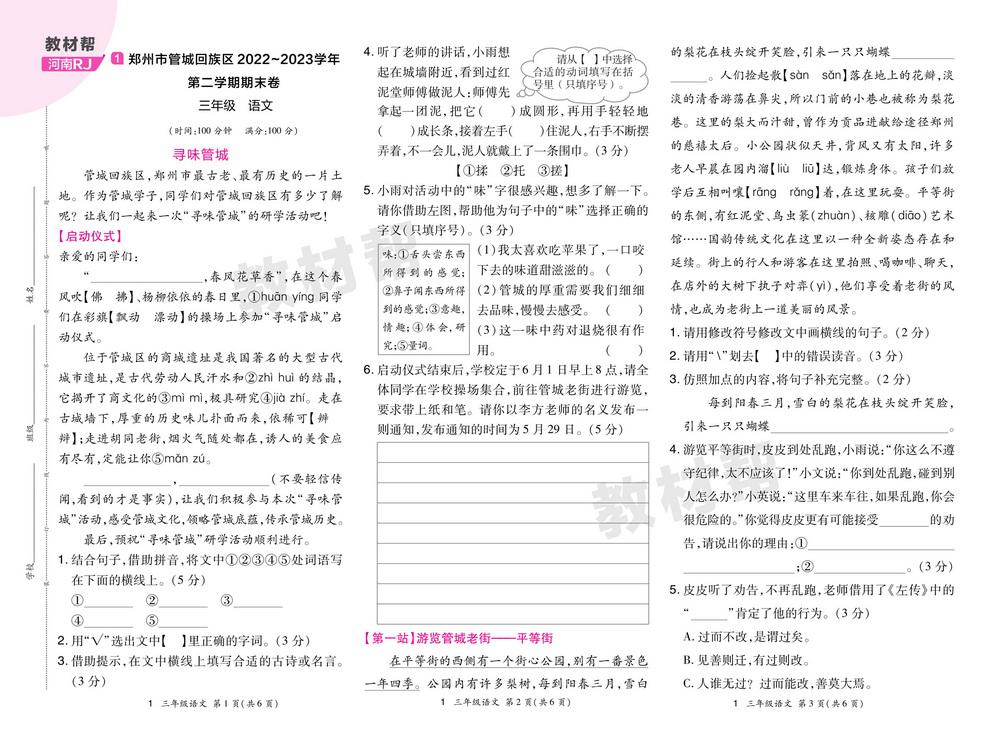 教材帮
河南RJ
1 郑州市管城回族区2022~2023学年
第二学期期末卷
三年级 语文
(时间:100分钟 满分:100分)
寻味管城
管城回族区,郑州市最古老、最有历史的一片土
地。作为管城学子,同学们对管城回族区有多少了解
呢?让我们一起来一次“寻味管城”的研学活动吧!
【启动仪式】
亲爱的同学们:
“________,春风花草香”,在这个春
风吹【佛 拂】、杨柳依依的春日里,①huān yíng 同学
们在彩旗【飘动 漂动】的操场上参加“寻味管城”启
动仪式。
位于管城区的商城遗址是我国著名的大型古代
城市遗址,是古代劳动人民汗水和②zhì huì 的结晶,
它揭开了商文化的③mì mì,极具研究④jià zhí。走在
古城墙下,厚重的历史味儿扑面而来,依稀可【辨
辩】;走进胡同老街,烟火气随处都在,诱人的美食应
有尽有,定能让你⑤mǎn zú。
________,________(不要轻信传
闻,看到的才是事实),让我们积极参与本次“寻味管
城”活动,感受管城文化,领略管城底蕴,传承管城历史。
最后,预祝“寻味管城”研学活动顺利进行。
1.结合句子,借助拼音,将文中①②③④⑤处词语写
在下面的横线上。(5分)
①________ ②________ ③________
④________ ⑤________
2.用“√”选出文中【 】里正确的字词。(3分)
3.借助提示,在文中横线上填写合适的古诗或名言。
(3分)
1 三年级语文 第1页(共6页)
4.听了老师的讲话,小雨想
起在城墙附近,看到过红
泥堂师傅做泥人:师傅先
请从【 】中选择
合适的动词填写在括
号里(只填序号)。
拿起一团泥,把它( )成圆形,再用手轻轻地
( )成长条,接着左手( )住泥人,右手不断摆
弄着,不一会儿,泥人就戴上了一条围巾。(3分)
【①揉 ②托 ③搓】
5.小雨对活动中的“味”字很感兴趣,想多了解一下。
请你借助左图,帮助他为句子中的“味”选择正确的
字义(只填序号)。(3分)
味:①舌头尝东西
所得到的感觉;
②鼻子闻东西所得
到的感觉;③意趣,
情趣;④体会,研
究;⑤量词。
(1)我太喜欢吃苹果了,一口咬
下去的味道甜滋滋的。( )
(2)管城的厚重需要我们细细
去品味,慢慢去感受。( )
(3)这一味中药对退烧很有作
用。( )
6.启动仪式结束后,学校定于6月1日早上8点,请全
体同学在学校操场集合,前往管城老街进行游览,
要求带上纸和笔。请你以李方老师的名义发布一
则通知,发布通知的时间为5月29日。(5分)
【第一站】游览管城老街——平等街
在平等街的西侧有一个街心公园,别有一番景色
一年四季。公园内有许多梨树,每到阳春三月,雪白
1 三年级语文 第2页(共6页)
的梨花在枝头绽开笑脸,引来一只只蝴蝶________
________。人们捡起散【sàn sǎn】落在地上的花瓣,淡
淡的清香游荡在鼻尖,所以门前的小巷也被称为梨花
巷。这里的梨大而汁甜,曾作为贡品进献给途径郑州
的慈禧太后。小公园状似天井,背风又有太阳,许多
老人早晨在园内溜【liù liū】达,锻炼身体。孩子们放
学后互相叫嚷【rāng rǎng】着,在这里玩耍。平等街
的东侧,有红泥堂、鸟虫篆(zhuàn)、核雕(diāo)艺术
馆……国韵传统文化在这里以一种全新姿态存在和
延续。街上的行人和游客在这里拍照、喝咖啡、聊天,
在店外的大树下执子对弈(yì),他们享受着老街的风
情,也成为老街上一道美丽的风景。
1.请用修改符号修改文中画横线的句子。(2分)
2.请用“\”划去【 】中的错误读音。(3分)
3.仿照加点的内容,将句子补充完整。(2分)
每到阳春三月,雪白的梨花在枝头绽开笑脸,
引来一只只蝴蝶________。
4.游览平等街时,皮皮到处乱跑,小雨说:“你这么不遵
守纪律,太不应该了!”小文说:“你到处乱跑,碰到别
人怎么办?”小英说:“这里车来车往,如果乱跑,你会
很危险的。”你觉得皮皮更有可能接受________的劝
告,请说出你的理由:①________
________;②________。(3分)
5.皮皮听了劝告,不再乱跑,老师借用了《左传》中的
“________”肯定了他的行为。(3分)
A.过而不改,是谓过矣。
B.见善则迁,有过则改。
C.人谁无过?过而能改,善莫大焉。
1 三年级语文 第3页(共6页)
姓名
班级
学校
教材帮
教材帮